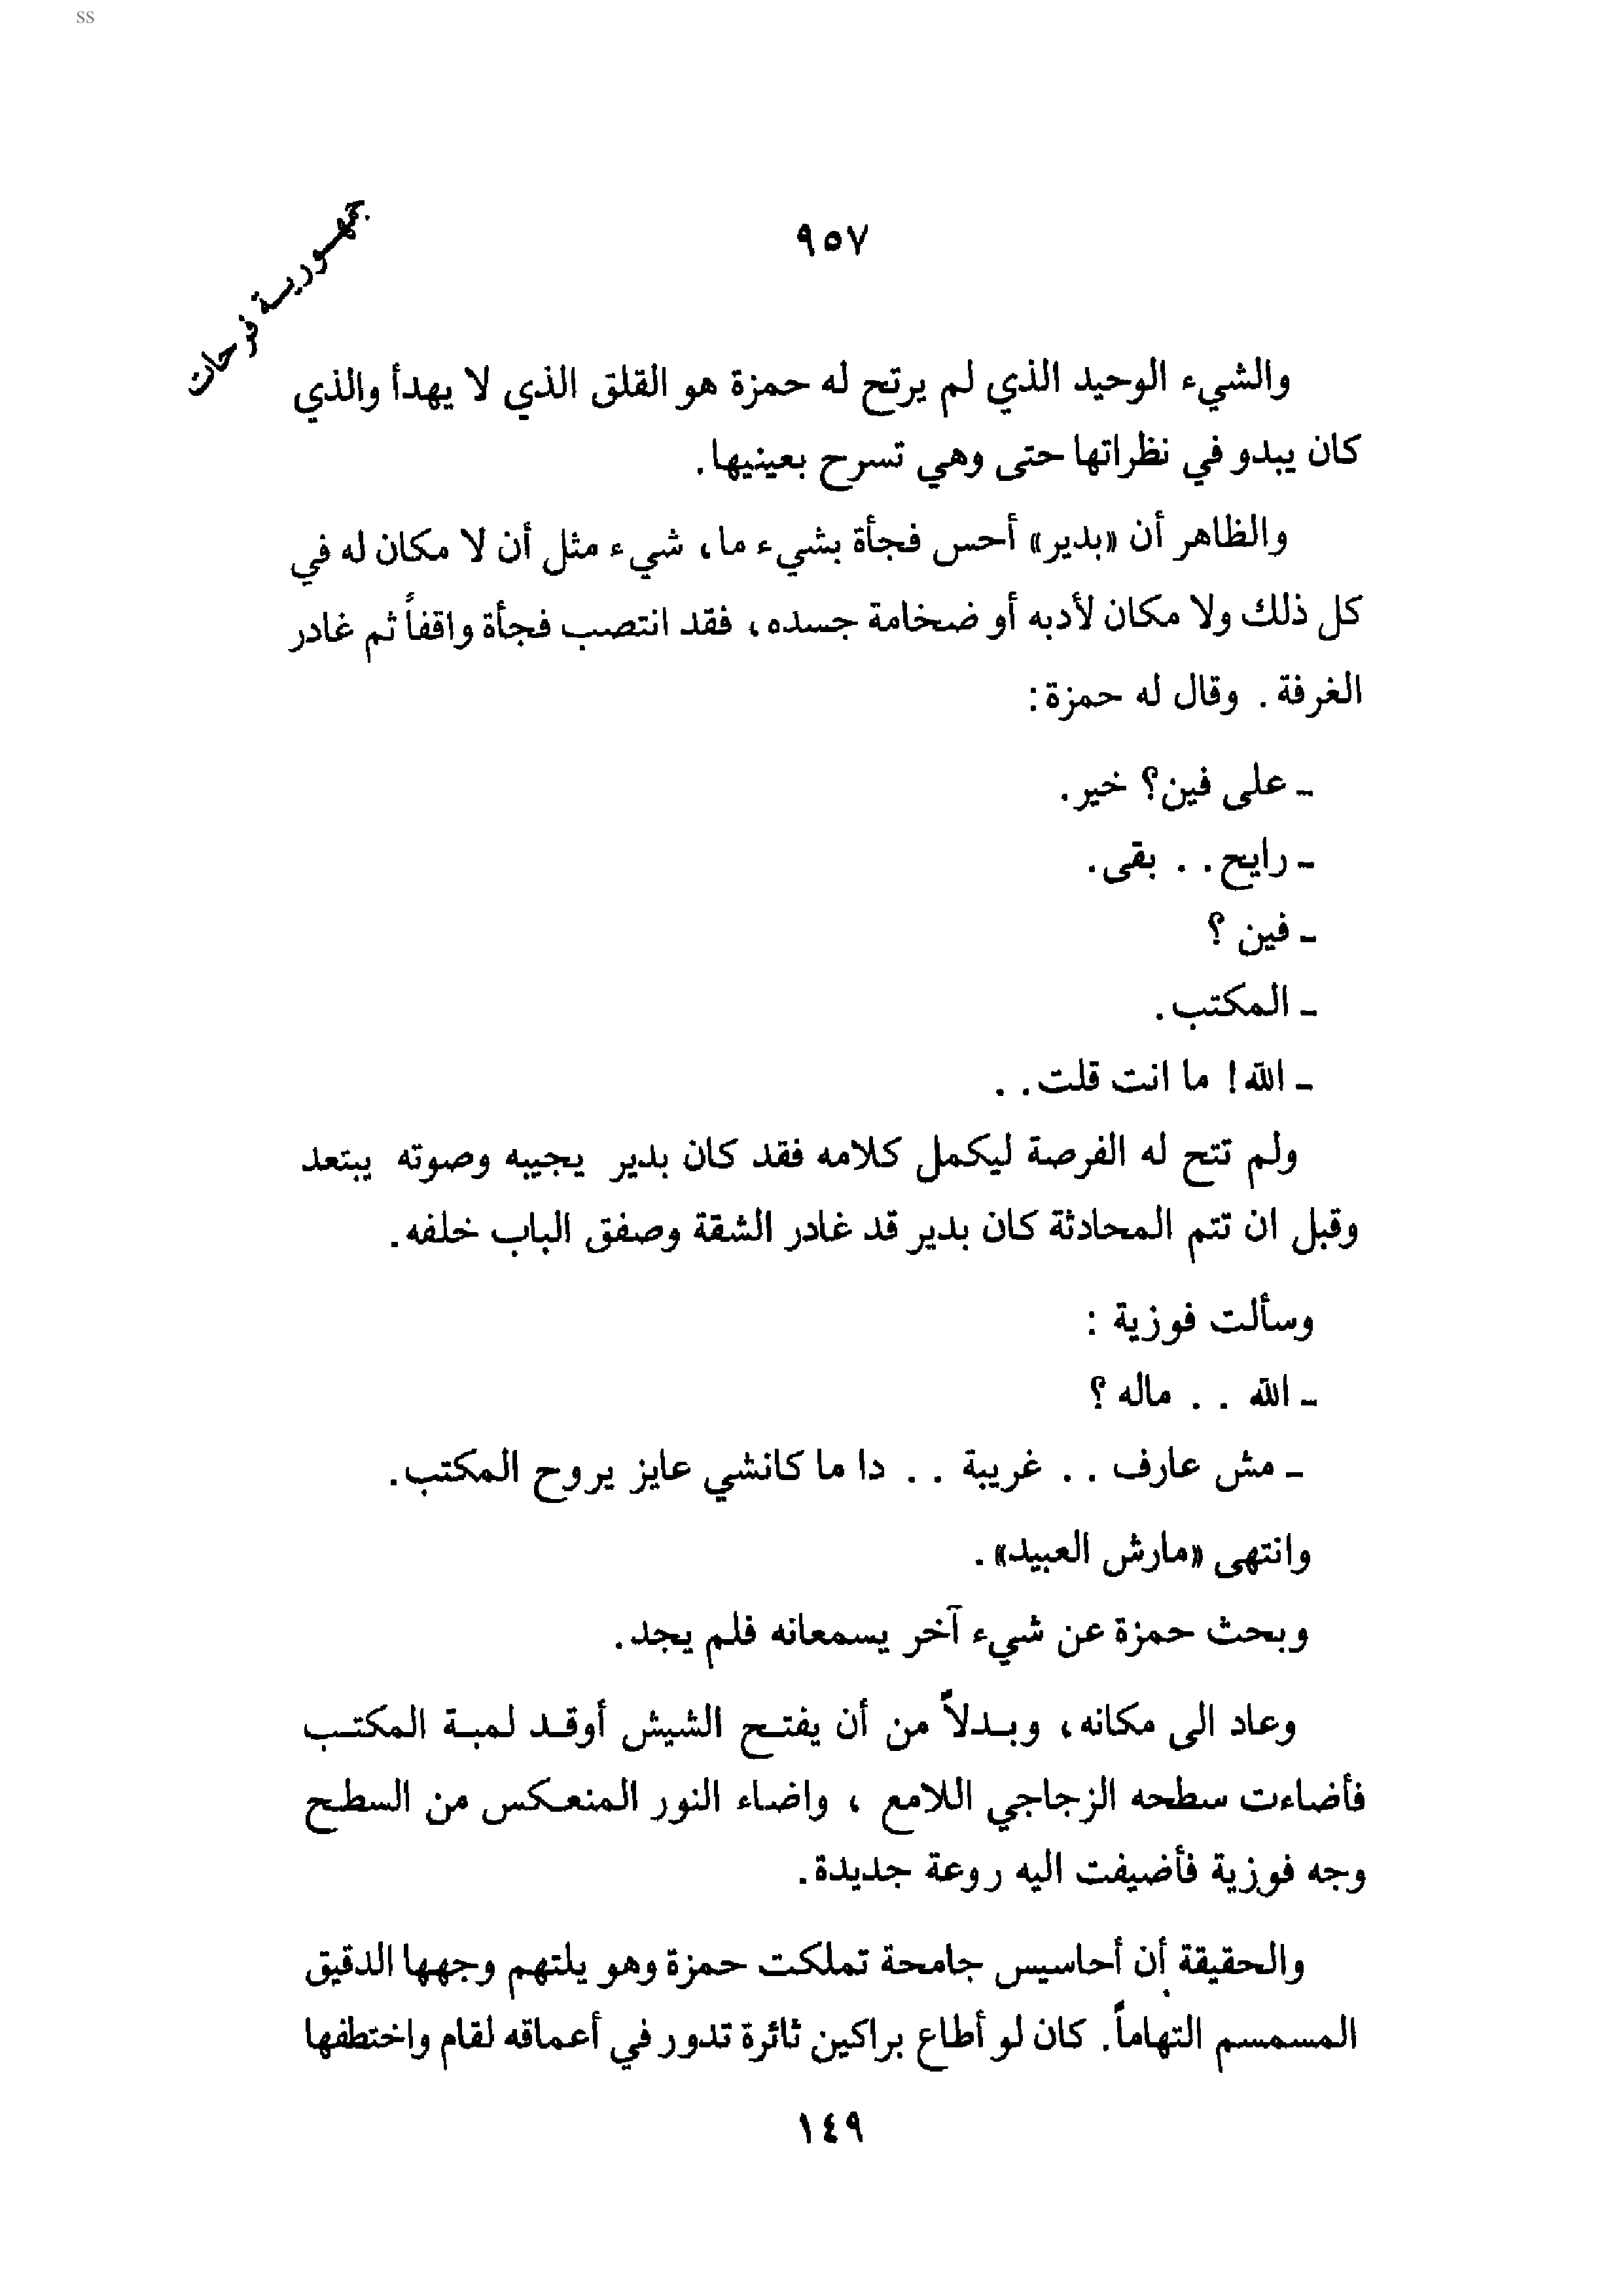 ss
جمهورية فرحات
٩٥٧
والشيء الوحيد الذي لم يرتح له حمزة هو القلق الذي لا يهدأ والذي
كان يبدو في نظراتها حتى وهي تسرح بعينيها.
والظاهر أن «بدير» أحس فجأة بشيء ما، شيء مثل أن لا مكان له في
كل ذلك ولا مكان لأدبه أو ضخامة جسده، فقد انتصب فجأة واقفاً ثم غادر
الغرفة. وقال له حمزة:
ـ على فين؟ خير.
ـ رايح. . بقى.
ـ فين ؟
ـ المكتب.
ـ الله! ما انت قلت. .
ولم تتح له الفرصة ليكمل كلامه فقد كان بدير يجيبه وصوته يبتعد
وقبل ان تتم المحادثة كان بدير قد غادر الشقة وصفق الباب خلفه.
وسألت فوزية :
ـ الله . . ماله ؟
ـ مش عارف . . غريبة . . دا ما كانشي عايز يروح المكتب.
وانتهى «مارش العبيد».
وبحث حمزة عن شيء آخر يسمعانه فلم يجد.
وعاد الى مكانه، وبـدلاً من أن يفتـح الشيش أوقـد لمبـة المكتـب
فأضاءت سطحه الزجاجي اللامع ، واضاء النور المنعكس من السطح
وجه فوزية فأضيفت اليه روعة جديدة.
والحقيقة أن أحاسيس جامحة تملكت حمزة وهو يلتهم وجهها الدقيق
المسمسم التهاماً. كان لو أطاع براكين ثائرة تدور في أعماقه لقام واختطفها
١٤٩